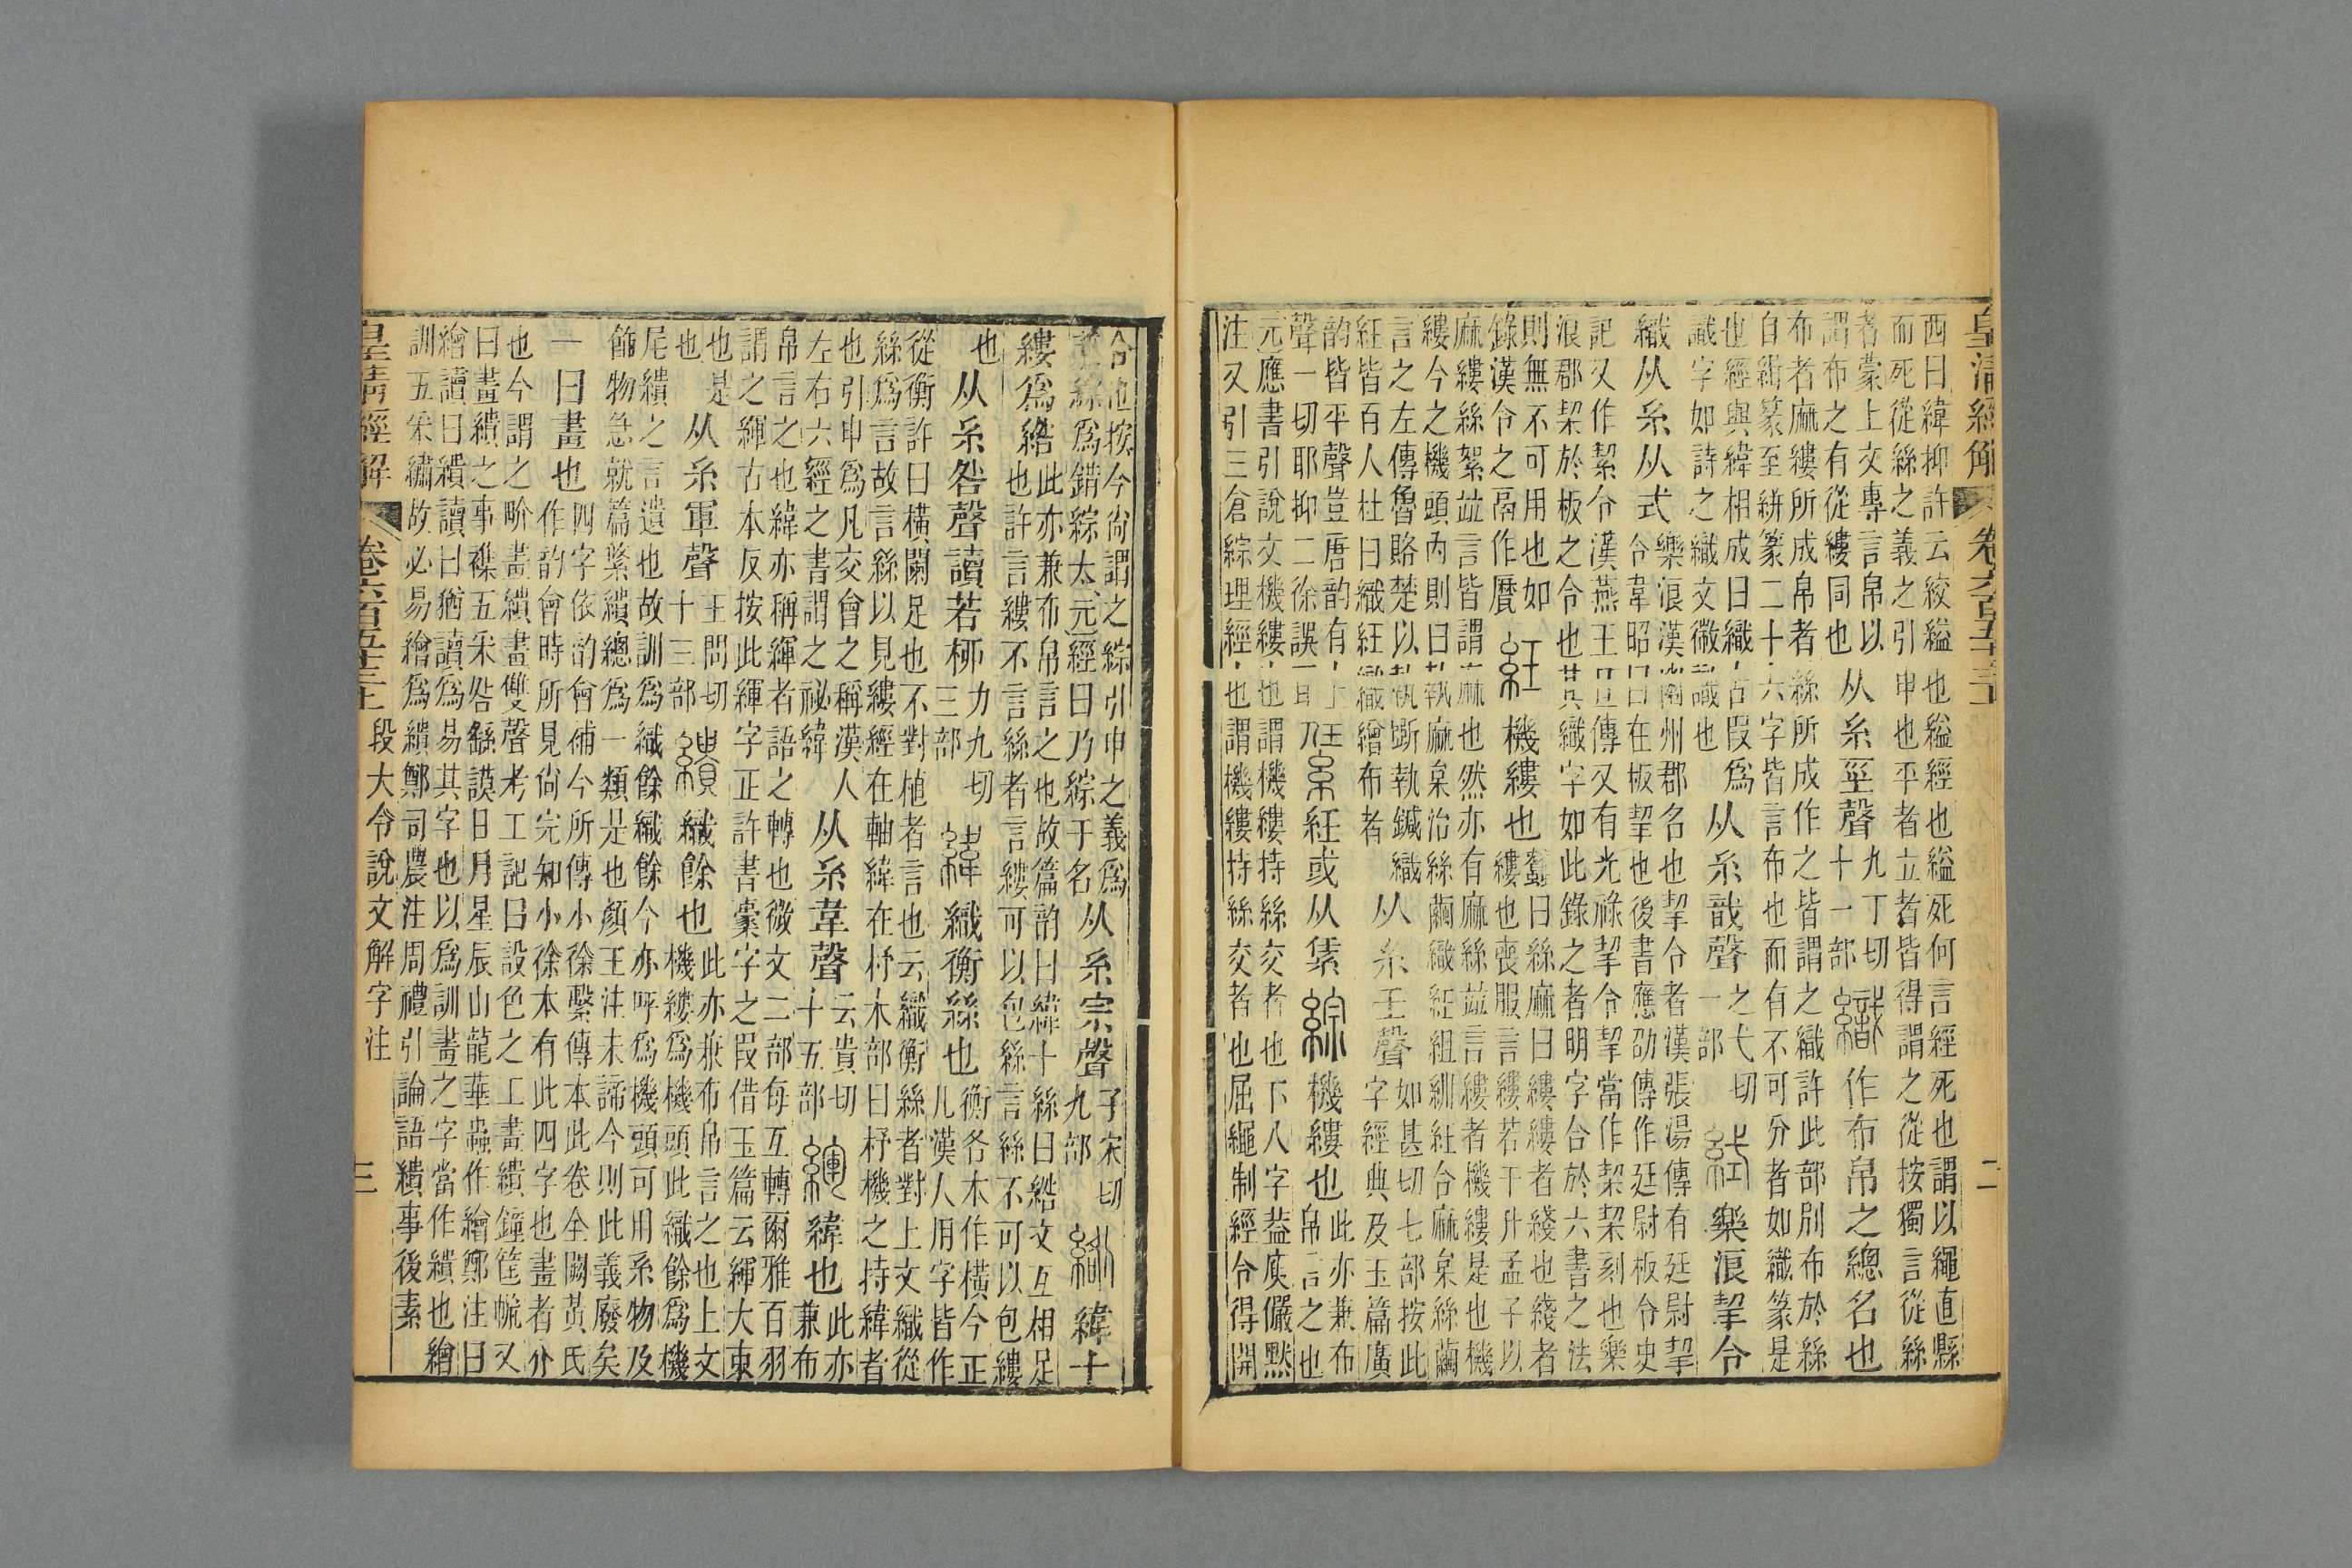 皇清經解 卷六百五十三上 二
西曰緯抑許云絞縊也縊經也縊死何言經死也謂以繩直縣
而死從絲之義之引申也平者立者皆得謂之從按獨言從絲
者蒙上文專言帛以
謂布之有從縷同也
从糸巠聲
九丁切
十一部
織 作布帛之總名也
布者麻縷所成帛者絲所成作之皆謂之織許此部別布於絲
自緝篆至絣篆二十六字皆言布也而有不可分者如織篆是
也經與緯相成曰織古叚爲
識字如詩之織文微識也
从糸戠聲
之弋切
一部
樂浪挈令
織从糸从式
樂浪漢幽州郡名也挈令者漢張湯傳有廷尉挈
令韋昭曰在板挈也後書應劭傳作廷尉板令史
記又作絜令漢燕王旦傳又有光祿挈令挈當作栔栔刻也樂
浪郡栔於板之令也其織字如此錄之者明字合於六書之法
則無不可用也如
錄漢令之鬲作曆
紝 機縷也
蠶曰絲麻曰縷縷者綫也綫者
縷也喪服言縷若干升孟子以
麻縷絲絮竝言皆謂麻也然亦有麻絲竝言縷者機縷是也機
縷今之機頭內則曰執麻枲治絲繭織紝組紃紝合麻枲絲繭
言之左傳魯賂楚以執斲執鍼織
紅皆百人杜曰織紝織繒布者
从糸壬聲
如甚切七部按此
字經典及玉篇廣
韵皆平聲豈唐韵有上
聲一切耶抑二徐誤耳
紝或从
綜 機縷也
此亦兼布
帛言之也
元應書引說文機縷也謂機縷持絲交者也下八字葢庾儼默
注又引三倉綜理經也謂機縷持絲交者也屈繩制經令得開
合也按今尚謂之綜引申之義爲
許絲爲錯綜太元經曰乃綜于名
从糸宗聲
子宋切
九部
綹 緯十
縷爲綹
此亦兼布帛言之也故篇韵曰緯十絲曰綹文互相足
也許言縷不言絲者言縷可以包絲言絲不可以包縷
也
从糸咎聲讀若桺
力九切
三部
緯 織衡絲也
衡各本作橫今正
凡漢人用字皆作
從衡許曰橫闌足也不對植者言也云織衡絲者對上文織從
絲爲言故言絲以見縷經在軸緯在杼木部曰杼機之持緯者
也引申爲凡交會之稱漢人
左右六經之書謂之祕緯
从糸韋聲
云貴切
十五部
緷 緯也
此亦
兼布
帛言之也緯亦稱緷者語之轉也微文二部每互轉爾雅百羽
謂之緷古本反按此緷字正許書橐字之叚借玉篇云緷大束
也是
也
从糸軍聲
王問切
十三部
繢 織餘也
此亦兼布帛言之也上文
機縷爲機頭此織餘爲機
尾繢之言遺也故訓爲織餘織餘今亦呼爲機頭可用系物及
飾物急就篇繢總爲一類是也顏王注未諦今則此義廢矣
一曰畫也
四字依韵會補今所傳小徐繫傳本此卷全闕黃氏
作韵會時所見尚完知小徐本有此四字也畫者介
也今謂之畍畫繢畫雙聲考工記曰設色之工畫繢鐘筐㡛又
曰畫繢之事襍五采咎繇謨日月星辰山龍華蟲作繪鄭注曰
繪讀曰繢讀曰猶讀爲易其字也以爲訓畫之字當作繢也繪
訓五采繡故必易繪爲繢鄭司農注周禮引論語繢事後素
皇清經解 卷六百五十三上 段大令說文解字注 三